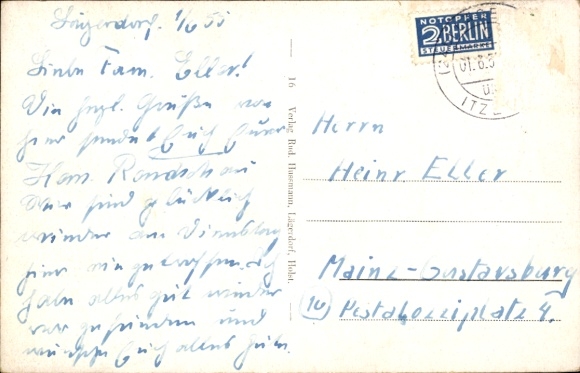 Lägerdorf. 1/6 55
Liebe Fam. Eller!
Die hrzl. Grüße von
hier sendet Euch Euer
Ham. Rundschau
Wir sind glücklich
wieder am Dienstag
hier eingetroffen. Ich
habe alles gut wieder
vorgefunden und
wünsche Euch alles Gute.
16 Verlag Rud. Husemann, Lägerdorf, Holst.
NOTOPFER
2 BERLIN
STEUERMARKE
01.6.5
ITZ
Herrn
Heinr Eller
Mainz-Gustavsburg
(16) Pestalozziplatz 4.